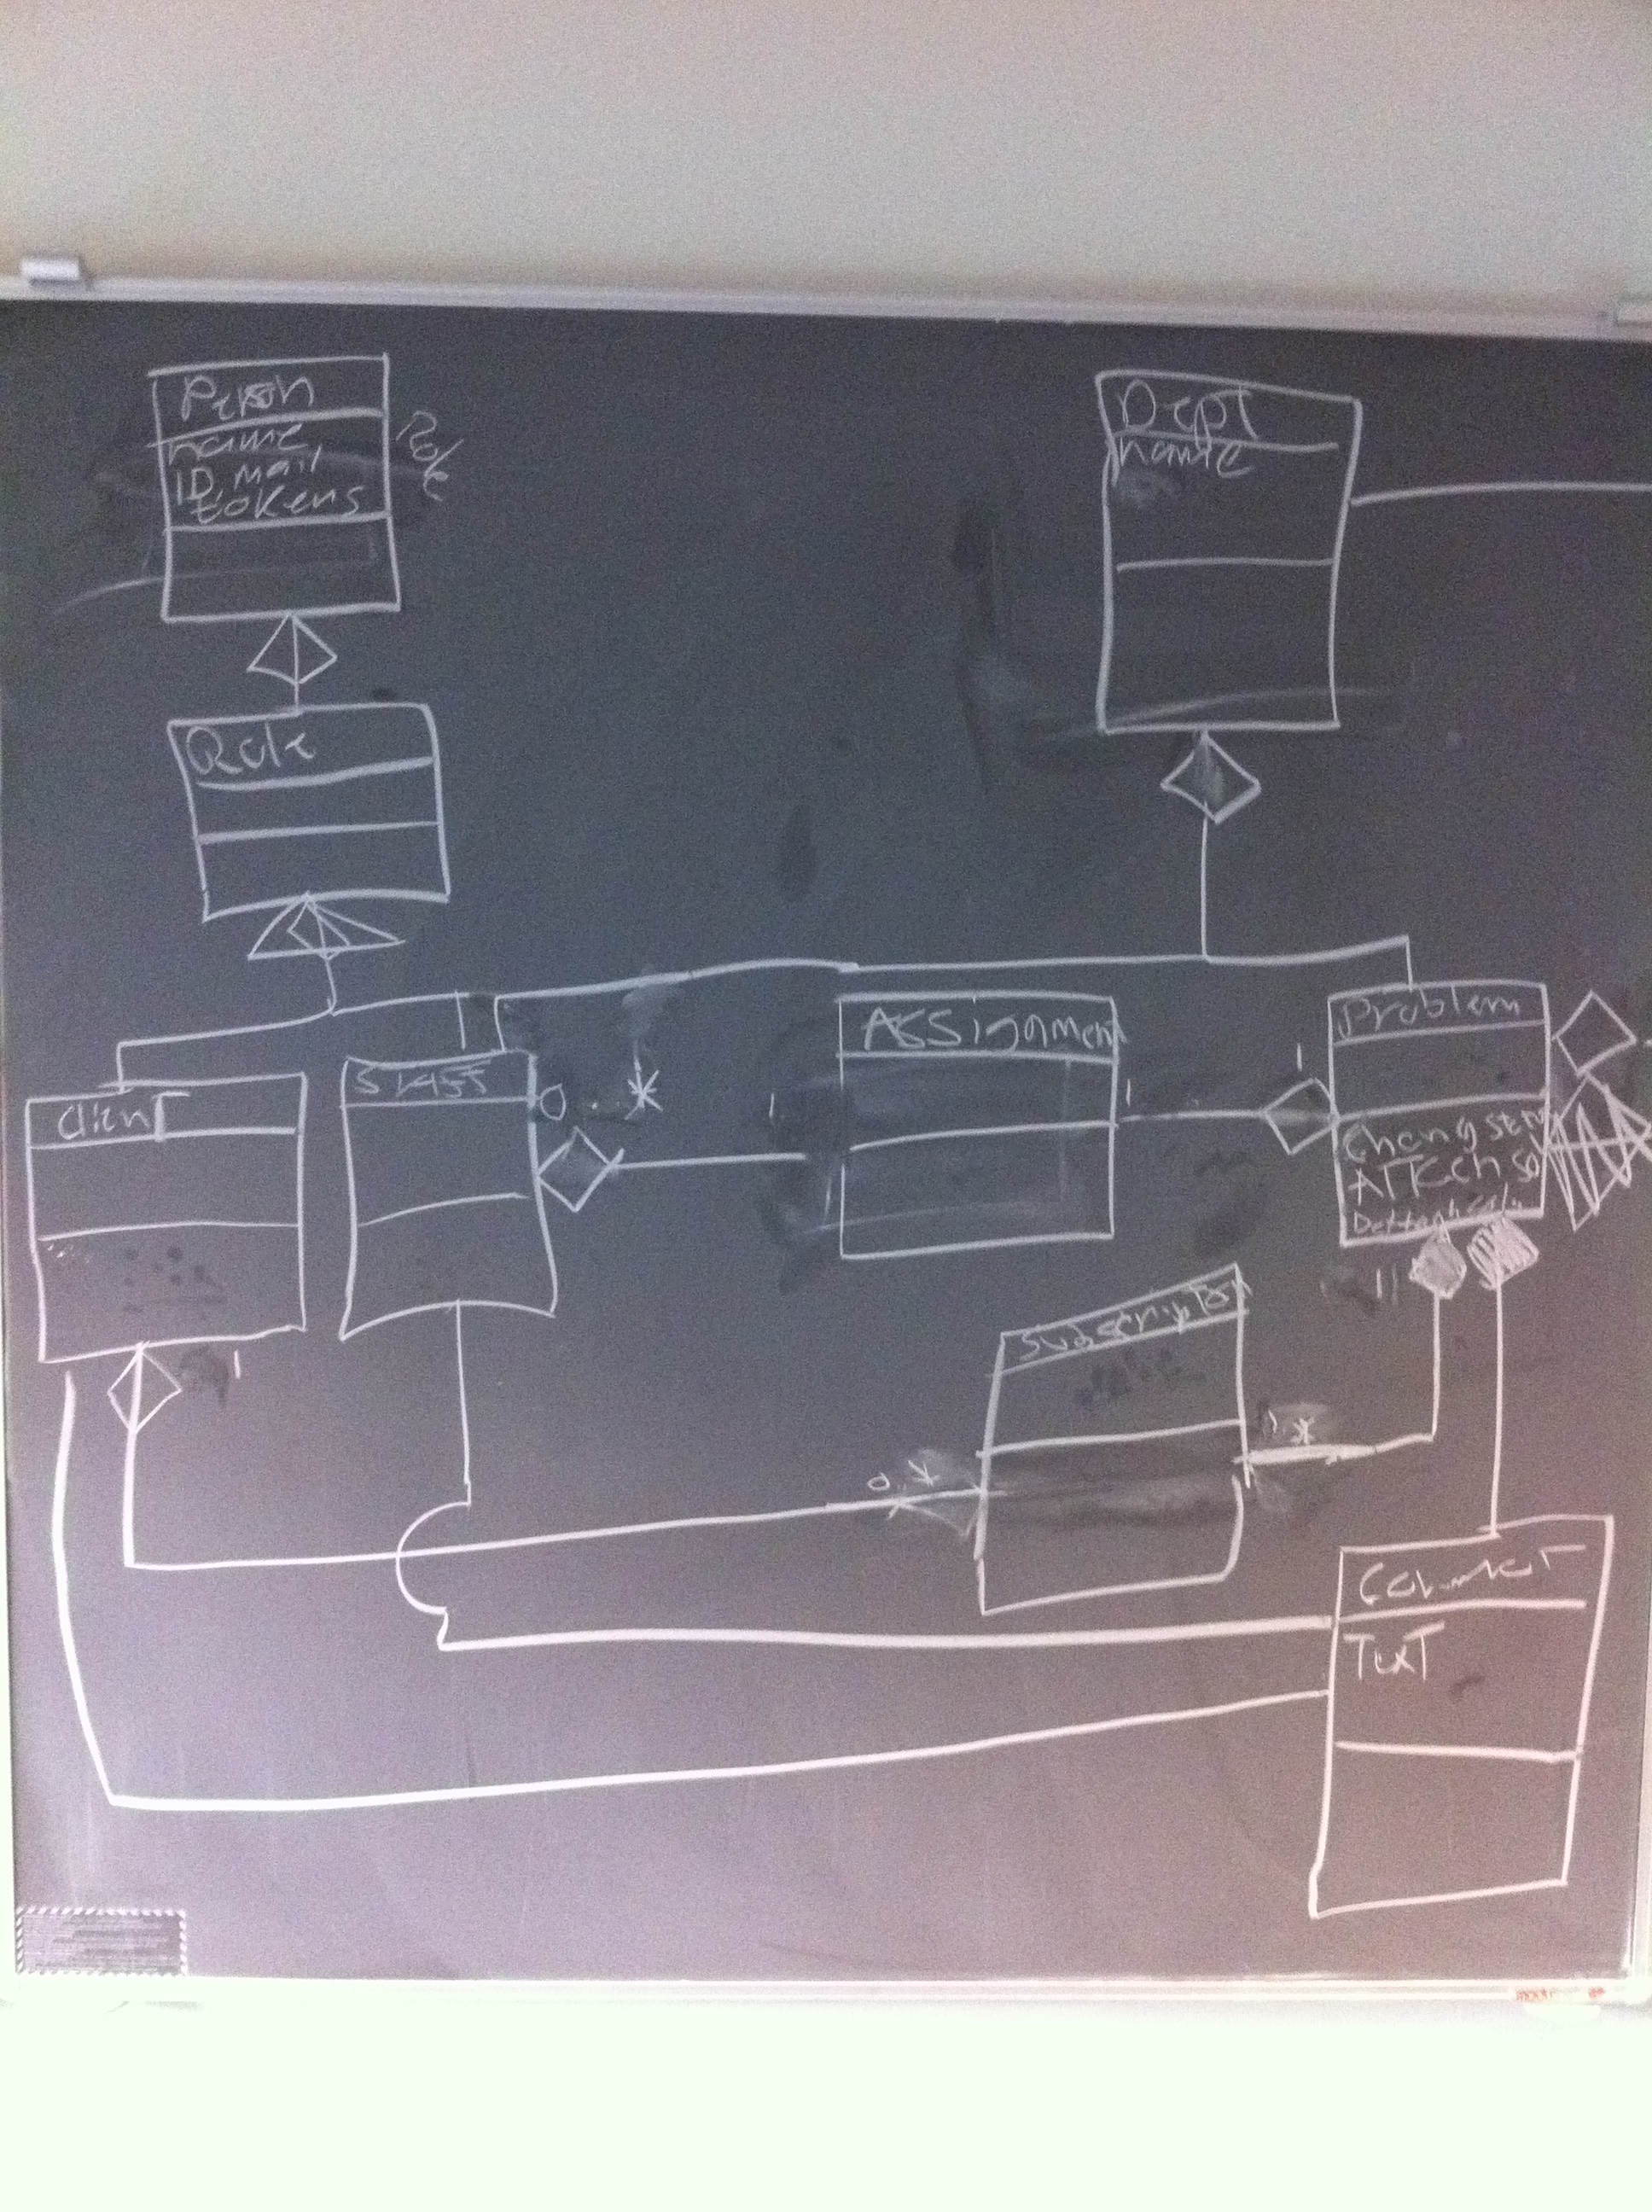 Person
name
ID, mail
tokens
Role
Dept
name
Role
Client
Staff
0..*
1
Assignment
1
1
Problem
Chang statu
ATTach sol
Dettach solu
1
1
Subscription
0 *
1 *
Comment
TexT